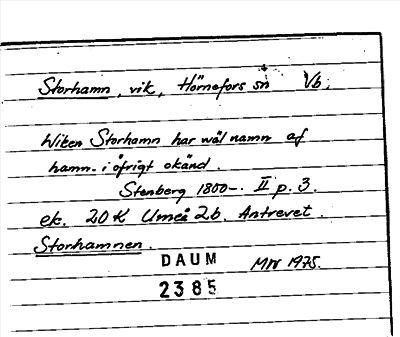 Storhamn, vik, Hörnefors sn Vb.
Wiken Storhamn har wäl namn af
hamn. i öfrigt okänd
Stenberg 1800-. II p. 3.
ek. 20 K Umeå 2b. Antrevet.
Storhamnen.
DAUM MW 1975.
2385